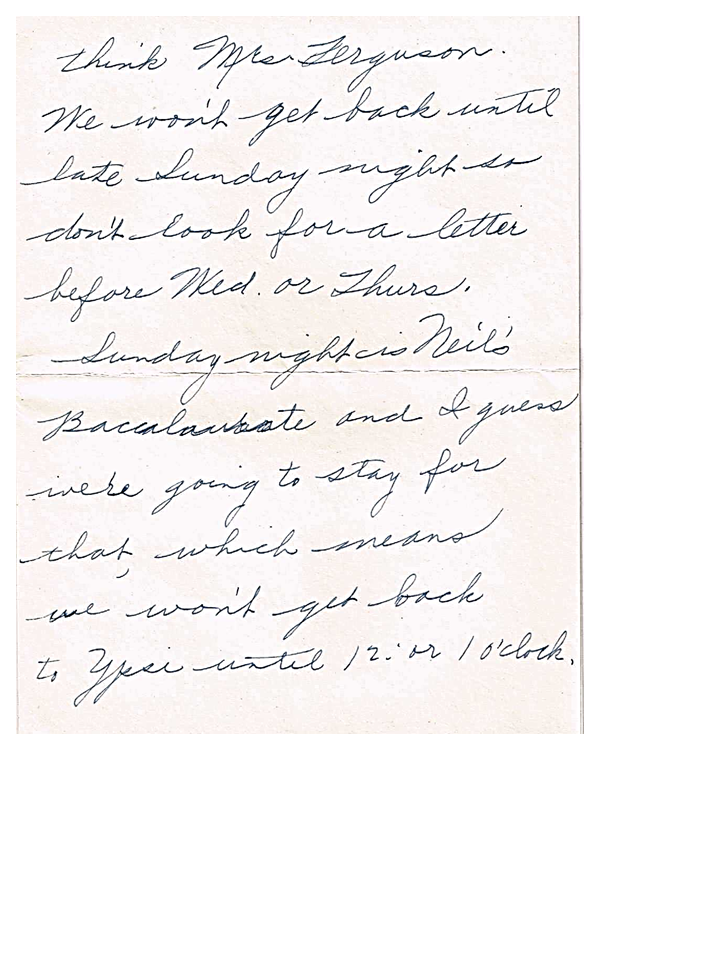 think Mrs. Ferguson.
We won't get back until
late Sunday night so
don't look for a letter
before Wed. or Thurs.
Sunday night is Neil's
Baccalaureate and I guess
we're going to stay for
that, which means
we won't get back
to Ypsi until 12: or 1 o'clock.